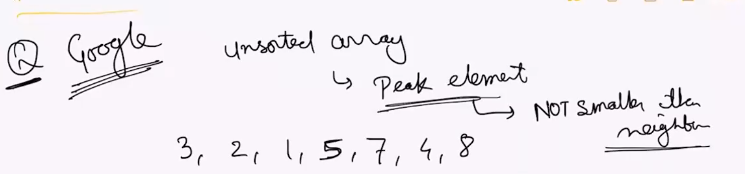 Q Google unsorted array
↳ Peak element
↳ NOT smaller then
neighbor
3, 2, 1, 5, 7, 4, 8